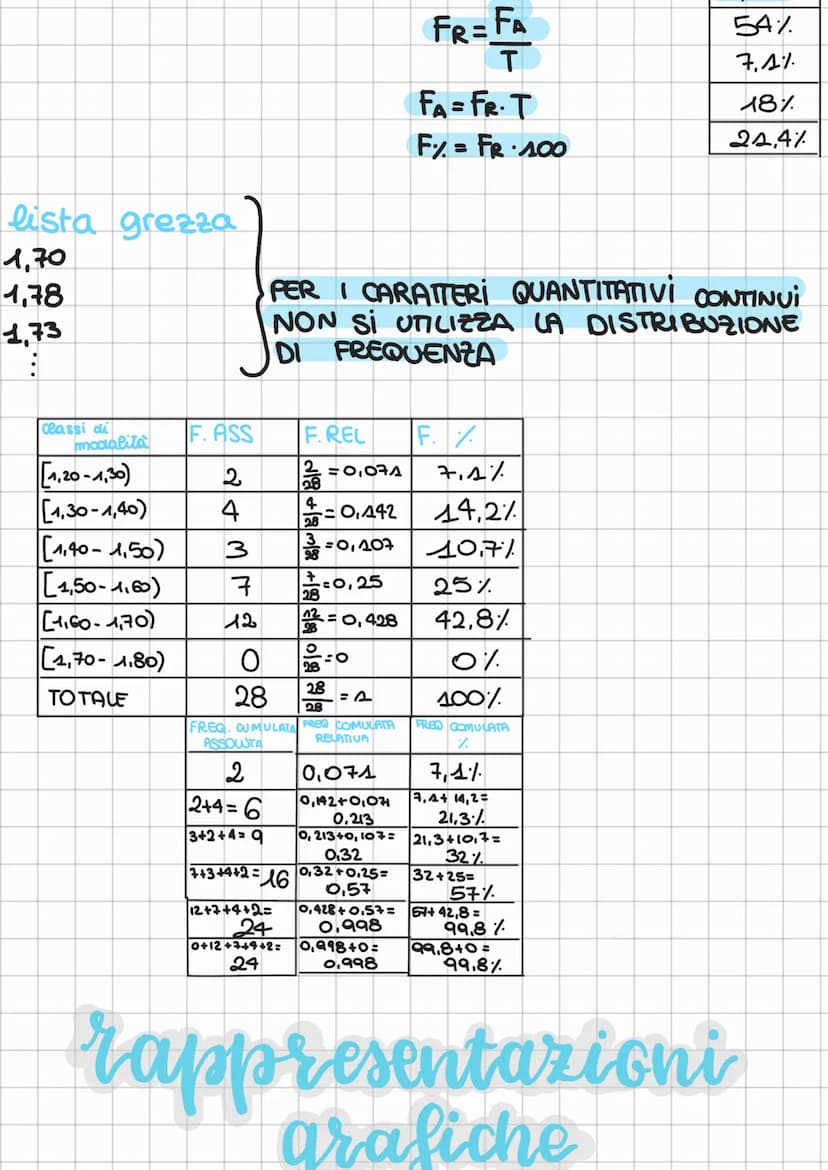 FR = FA / T
FA = FR · T
F% = FR · 100
54%
7,1%
18%
21,4%
lista grezza
1,70
1,78
1,73
⋮
PER I CARATTERI QUANTITATIVI CONTINUI
NON SI UTILIZZA LA DISTRIBUZIONE
DI FREQUENZA
classi di modalità F. ASS F. REL F. %
[1,20-1,30) 2 2/28 = 0,071 7,1%
[1,30-1,40) 4 4/28 = 0,142 14,2%
[1,40-1,50) 3 3/28 = 0,107 10,7%
[1,50-1,60) 7 7/28 = 0,25 25%
[1,60-1,70) 12 12/28 = 0,428 42,8%
[1,70-1,80) 0 0/28 = 0 0%
TOTALE 28 28/28 = 1 100%
FREQ. CUMULATA ASSOLUTA FREQ COMULATA RELATIVA FREQ COMULATA %
2 0,071 7,1%
2+4= 6 0,142+0,071 0,213 7,1+14,2= 21,3%
3+2+4= 9 0,213+0,107= 0,32 21,3+10,7= 32%
7+3+4+2= 16 0,32+0,25= 0,57 32+25= 57%
12+7+4+2= 24 0,428+0,57= 0,998 57+42,8= 99,8%
0+12+7+4+2= 24 0,998+0= 0,998 99,8+0= 99,8%
rappresentazioni
grafiche